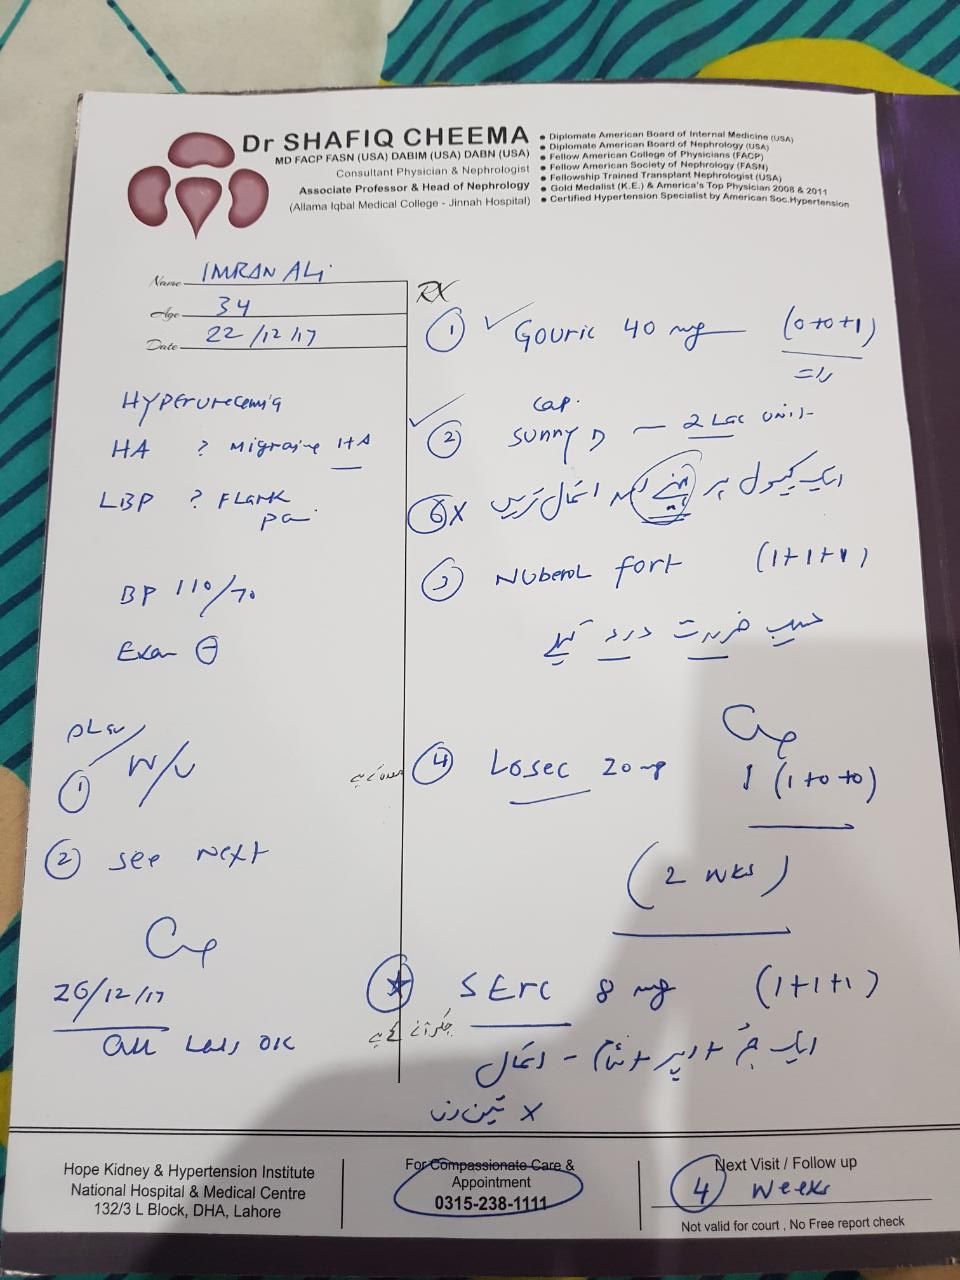 Dr SHAFIQ CHEEMA
MD FACP FASN (USA) DABIM (USA) DABN (USA)
Consultant Physician & Nephrologist
Associate Professor & Head of Nephrology
(Allama Iqbal Medical College - Jinnah Hospital)
• Diplomate American Board of Internal Medicine (USA)
• Diplomate American Board of Nephrology (USA)
• Fellow American College of Physicians (FACP)
• Fellow American Society of Nephrology (FASN)
• Fellowship Trained Transplant Nephrologist (USA)
• Gold Medalist (K.E.) & America's Top Physician 2008 & 2011
• Certified Hypertension Specialist by American Soc.Hypertension
Name IMRAN ALi
Age 34
Date 22/12/17
Hyperurecemia
HA ? Migraine HA
LBP ? Flank
BP 110/70
Exam ⊖
plan
① W/U
② see next
26/12/17
All Labs OK
RX
① ✓ Gouric 40 mg (0+0+1)
Cap.
② ✓ Sunny D — 2 Lac units
⑥ x ایک کیپسول ہر استعمال کریں
③ Nuberol fort (1+1+1)
حسب ضرورت درد کیلئے
④ Losec 20 mg (1+0+0)
(2 wks)
★ SErc 8 mg (1+1+1)
ایک صبح + دوپہر + شام - استعمال
x تین دن
Hope Kidney & Hypertension Institute
National Hospital & Medical Centre
132/3 L Block, DHA, Lahore
For Compassionate Care &
Appointment
0315-238-1111
Next Visit / Follow up
4 weeks
Not valid for court , No Free report check